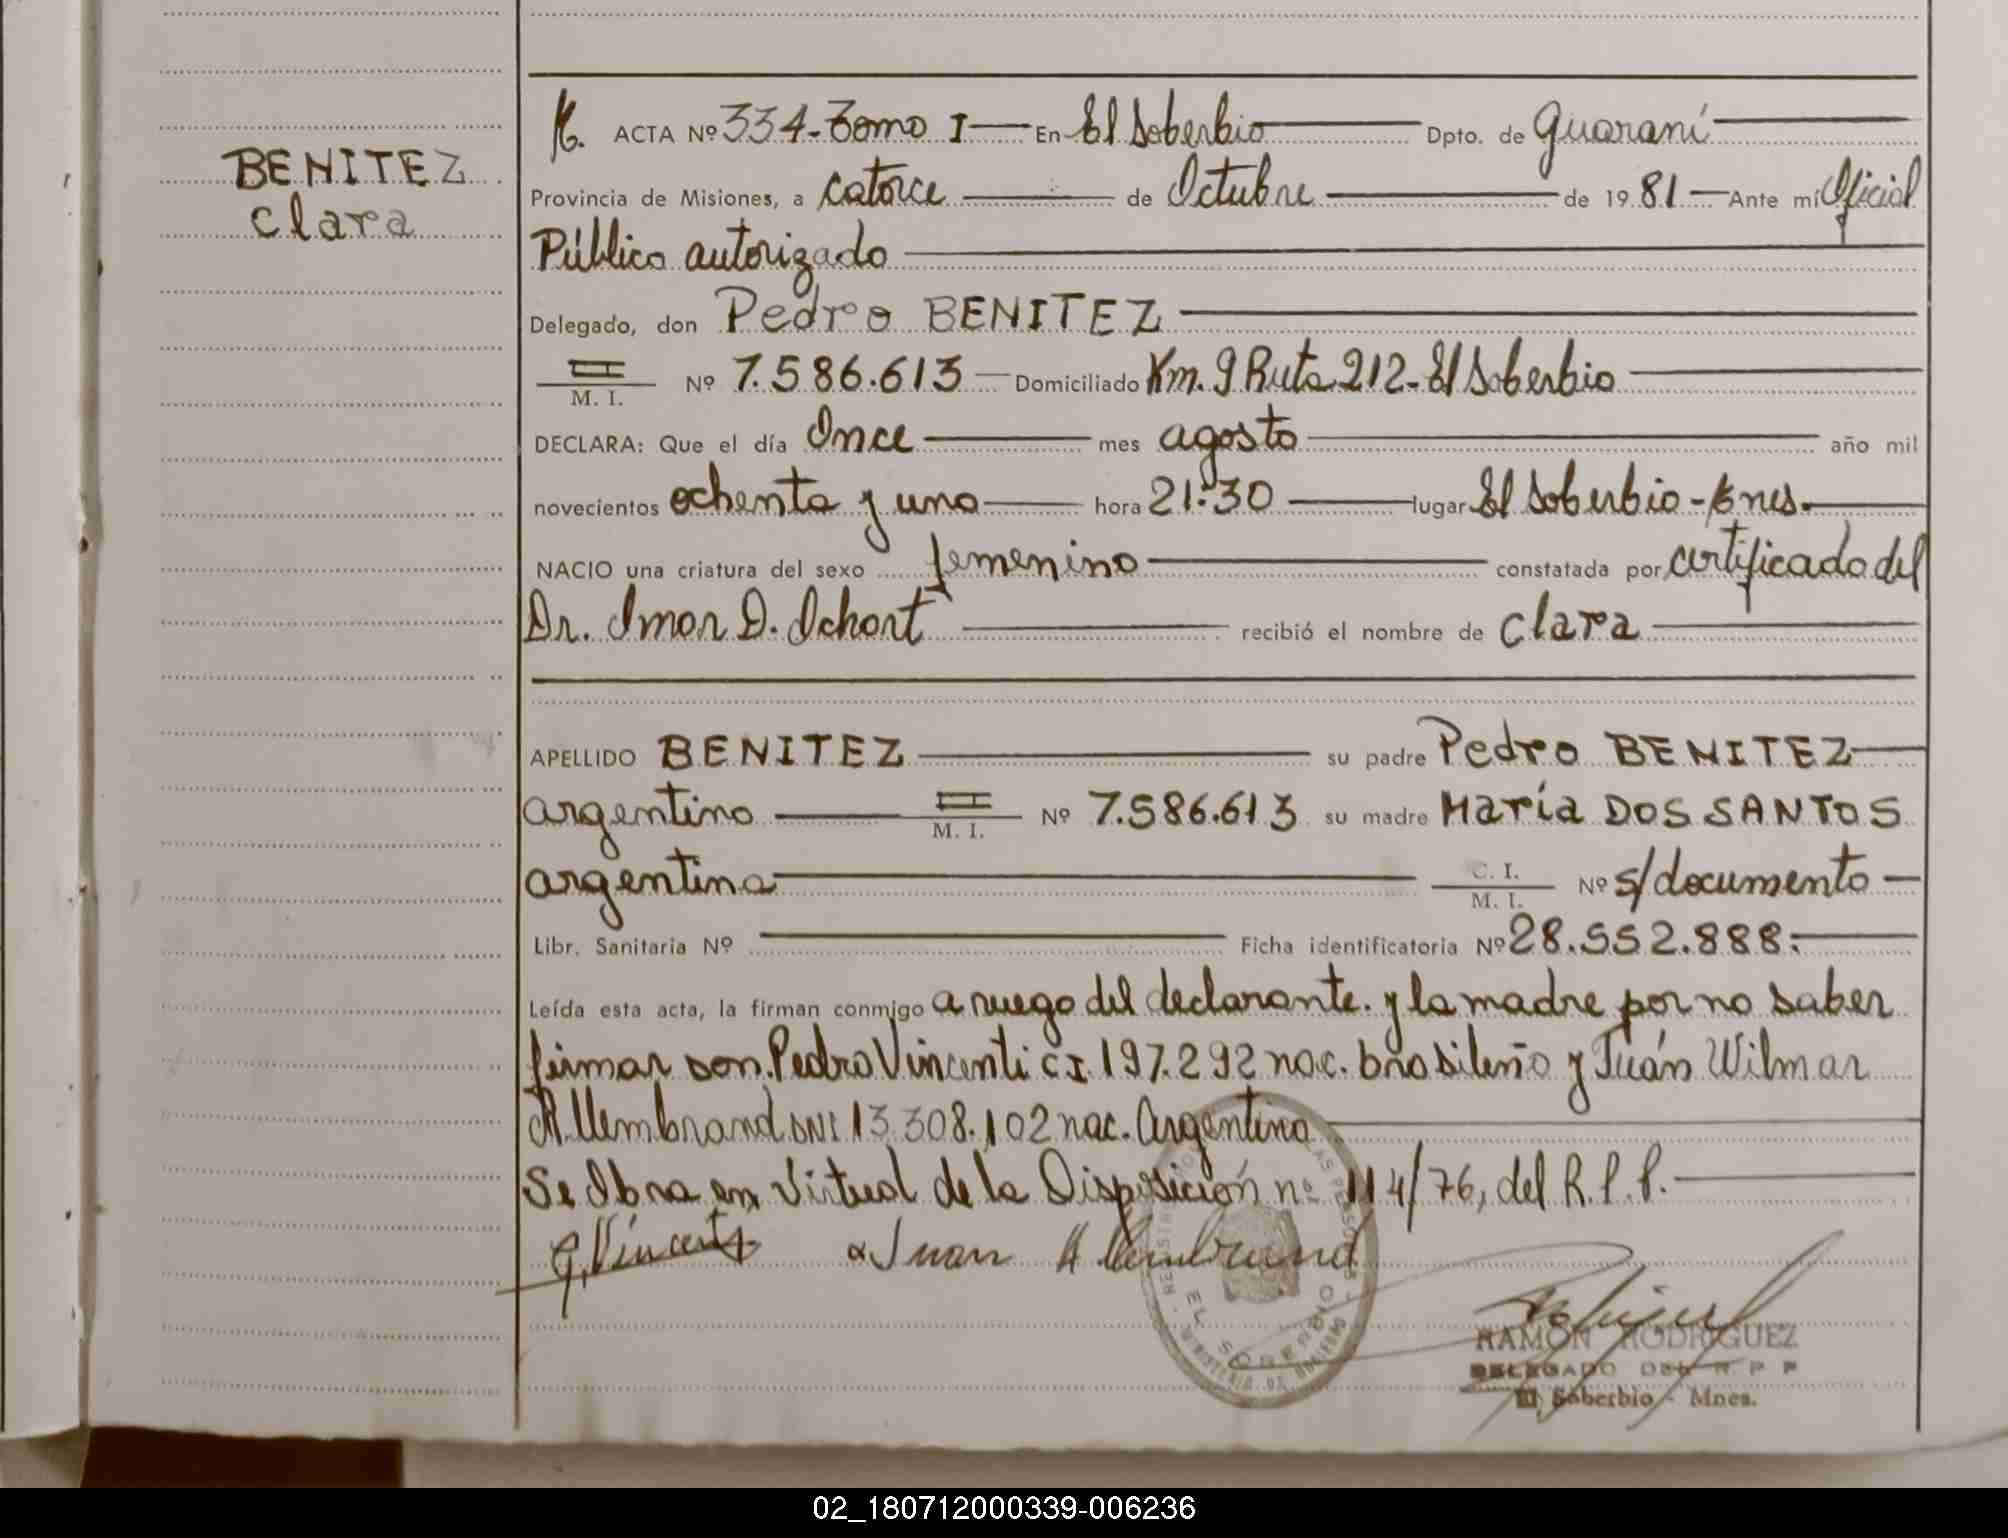 BENITEZ
Clara
ACTA Nº 334-Tomo I En El Soberbio Dpto. de Guaraní
Provincia de Misiones, a catorce de Octubre de 1981 Ante mi Oficial
Público autorizado
Delegado, don Pedro BENITEZ
M. I. Nº 7.586.613 Domiciliado Km. 9 Ruta 212-El Soberbio
DECLARA: Que el día Once mes agosto año mil
novecientos ochenta y uno hora 21:30 lugar El Soberbio-Mnes.
NACIO una criatura del sexo femenino constatada por certificado del
Dr. Imar D. Ochort recibió el nombre de Clara
APELLIDO BENITEZ su padre Pedro BENITEZ
argentino M. I. Nº 7.586.613 su madre María DOS SANTOS
argentina C. I. M. I. Nº s/documento
Libr. Sanitaria Nº Ficha identificatoria Nº 28.552.888.
Leída esta acta, la firman conmigo a ruego del declarante. y la madre por no saber
firmar son. Pedro Vincenti C.I. 197.292 nac. brasileño y Juán Wilmar
A. Llembrand DNI 13.308.102 nac. Argentina
Se Obra en Virtual de la Disposición nº 114/76, del R.P.P.
Juan
EL SOBERBIO
RAMON RODRIGUEZ
DELEGADO DEL R P P
El Soberbio - Mnes.
02_180712000339-006236